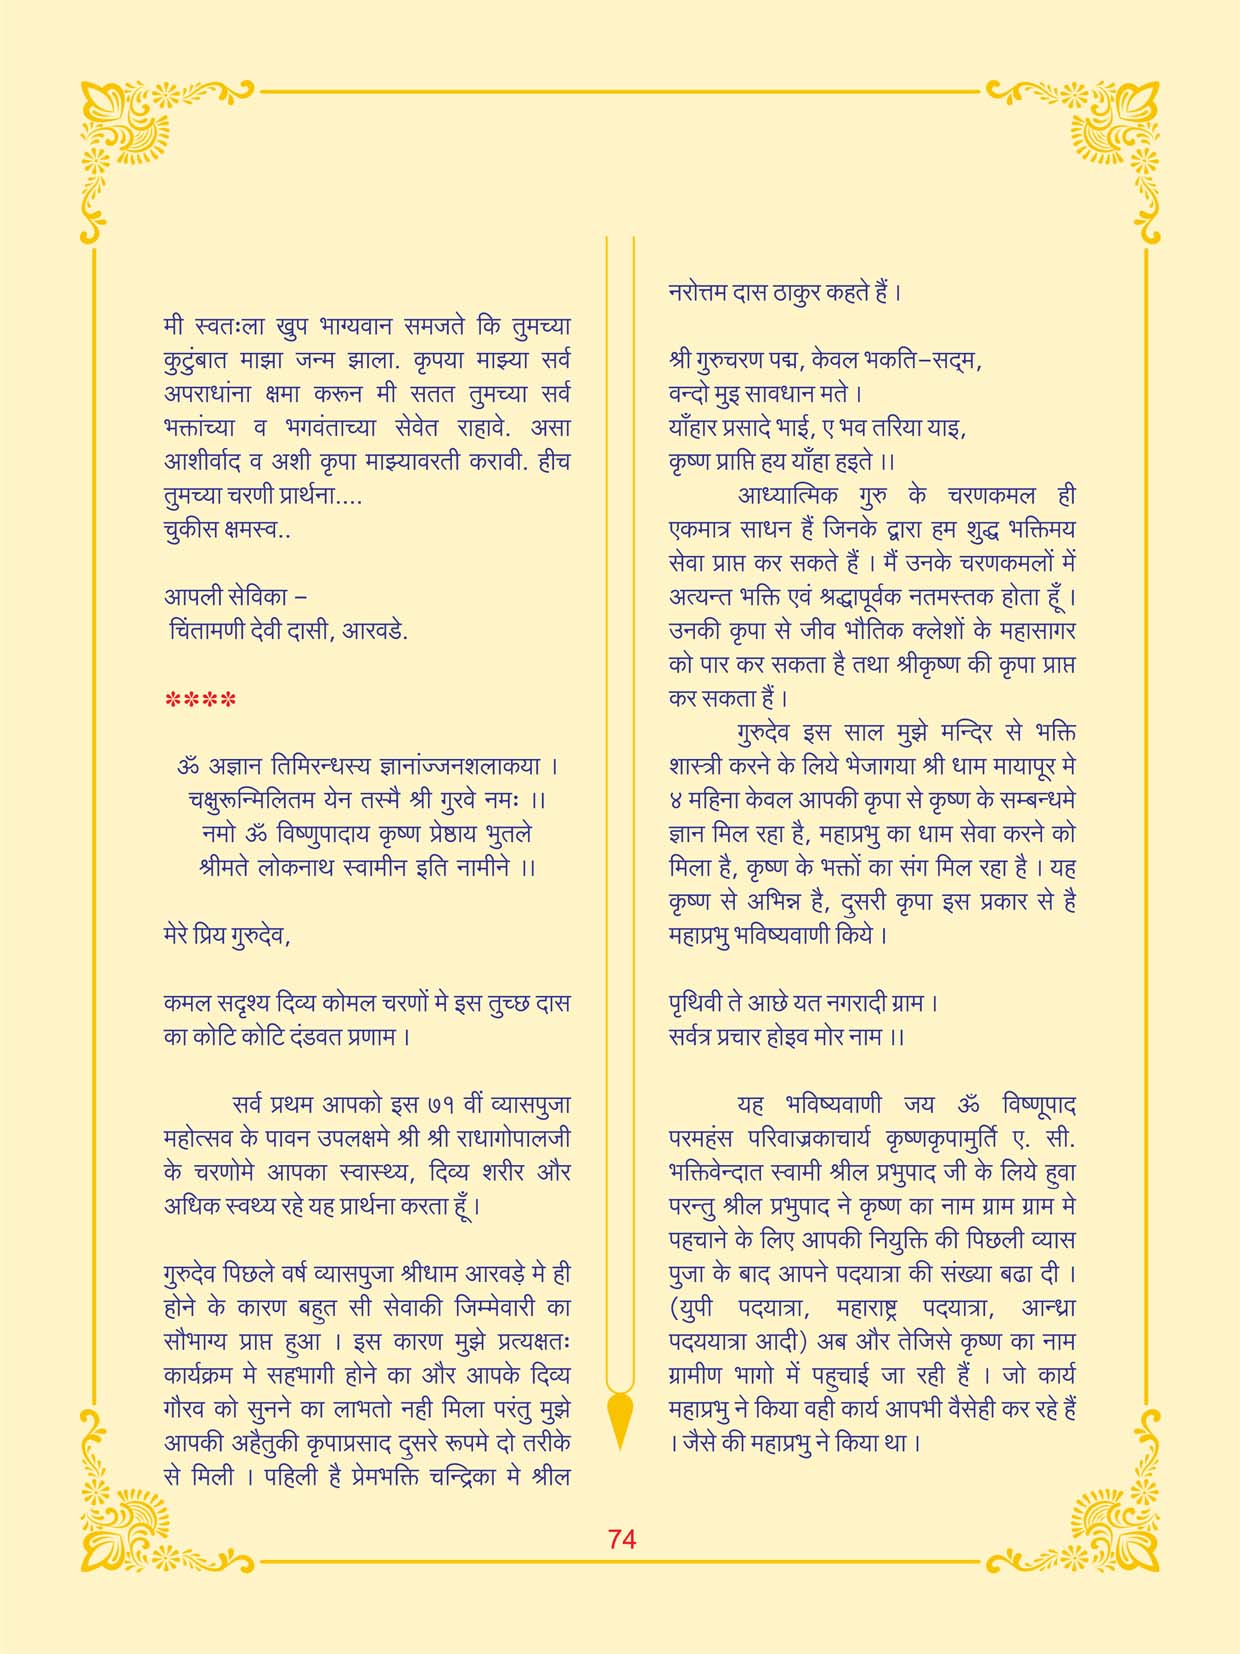 मी स्वतःला खुप भाग्यवान समजते कि तुमच्या
कुटुंबात माझा जन्म झाला. कृपया माझ्या सर्व
अपराधांना क्षमा करून मी सतत तुमच्या सर्व
भक्तांच्या व भगवंताच्या सेवेत राहावे. असा
आशीर्वाद व अशी कृपा माझ्यावरती करावी. हीच
तुमच्या चरणी प्रार्थना....
चुकीस क्षमस्व..
आपली सेविका –
चिंतामणी देवी दासी, आरवडे.
****
ॐ अज्ञान तिमिरन्धस्य ज्ञानांज्जनशलाकया ।
चक्षुरून्मिलितम येन तस्मै श्री गुरवे नमः ।।
नमो ॐ विष्णुपादाय कृष्ण प्रेष्ठाय भुतले
श्रीमते लोकनाथ स्वामीन इति नामीने ।।
मेरे प्रिय गुरुदेव,
कमल सदृश्य दिव्य कोमल चरणों मे इस तुच्छ दास
का कोटि कोटि दंडवत प्रणाम ।
सर्व प्रथम आपको इस ७१ वीं व्यासपुजा
महोत्सव के पावन उपलक्षमे श्री श्री राधागोपालजी
के चरणोमे आपका स्वास्थ्य, दिव्य शरीर और
अधिक स्वथ्य रहे यह प्रार्थना करता हूँ ।
गुरुदेव पिछले वर्ष व्यासपुजा श्रीधाम आरवड़े मे ही
होने के कारण बहुत सी सेवाकी जिम्मेवारी का
सौभाग्य प्राप्त हुआ । इस कारण मुझे प्रत्यक्षतः
कार्यक्रम मे सहभागी होने का और आपके दिव्य
गौरव को सुनने का लाभतो नही मिला परंतु मुझे
आपकी अहैतुकी कृपाप्रसाद दुसरे रूपमे दो तरीके
से मिली । पहिली है प्रेमभक्ति चन्द्रिका मे श्रील
नरोत्तम दास ठाकुर कहते हैं ।
श्री गुरुचरण पद्म, केवल भकति–सद्म,
वन्दो मुइ सावधान मते ।
याँहार प्रसादे भाई, ए भव तरिया याइ,
कृष्ण प्राप्ति हय याँहा हइते ।।
आध्यात्मिक गुरु के चरणकमल ही
एकमात्र साधन हैं जिनके द्वारा हम शुद्ध भक्तिमय
सेवा प्राप्त कर सकते हैं । मैं उनके चरणकमलों में
अत्यन्त भक्ति एवं श्रद्धापूर्वक नतमस्तक होता हूँ ।
उनकी कृपा से जीव भौतिक क्लेशों के महासागर
को पार कर सकता है तथा श्रीकृष्ण की कृपा प्राप्त
कर सकता हैं ।
गुरुदेव इस साल मुझे मन्दिर से भक्ति
शास्त्री करने के लिये भेजागया श्री धाम मायापूर मे
४ महिना केवल आपकी कृपा से कृष्ण के सम्बन्धमे
ज्ञान मिल रहा है, महाप्रभु का धाम सेवा करने को
मिला है, कृष्ण के भक्तों का संग मिल रहा है । यह
कृष्ण से अभिन्न है, दुसरी कृपा इस प्रकार से है
महाप्रभु भविष्यवाणी किये ।
पृथिवी ते आछे यत नगरादी ग्राम ।
सर्वत्र प्रचार होइव मोर नाम ।।
यह भविष्यवाणी जय ॐ विष्णूपाद
परमहंस परिवाज्रकाचार्य कृष्णकृपामुर्ति ए. सी.
भक्तिवेन्दात स्वामी श्रील प्रभुपाद जी के लिये हुवा
परन्तु श्रील प्रभुपाद ने कृष्ण का नाम ग्राम ग्राम मे
पहचाने के लिए आपकी नियुक्ति की पिछली व्यास
पुजा के बाद आपने पदयात्रा की संख्या बढा दी ।
(युपी पदयात्रा, महाराष्ट्र पदयात्रा, आन्ध्रा
पदययात्रा आदी) अब और तेजिसे कृष्ण का नाम
ग्रामीण भागो में पहुचाई जा रही हैं । जो कार्य
महाप्रभु ने किया वही कार्य आपभी वैसेही कर रहे हैं
। जैसे की महाप्रभु ने किया था ।
74